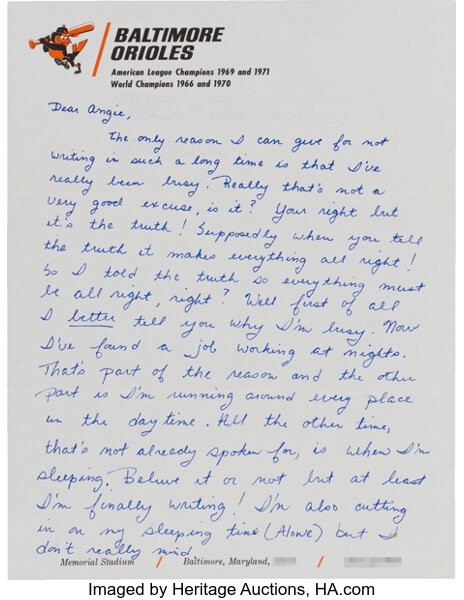 BALTIMORE
ORIOLES
American League Champions 1969 and 1971
World Champions 1966 and 1970
Dear Angie,
The only reason I can give for not
writing in such a long time is that I've
really been busy. Really that's not a
very good excuse, is it? Your right but
it's the truth! Supposedly when you tell
the truth it makes everything all right!
So I told the truth so everything must
be all right, right? Well first of all
I better tell you why I'm busy. Now
I've found a job working at nights.
That's part of the reason and the other
part is I'm running around every place
in the daytime. All the other time,
that's not already spoken for, is when I'm
sleeping. Believe it or not but at least
I'm finally writing! I'm also cutting
in on my sleeping time (Alone) but I
don't really mind.
Memorial Stadium / Baltimore, Maryland, /
Imaged by Heritage Auctions, HA.com